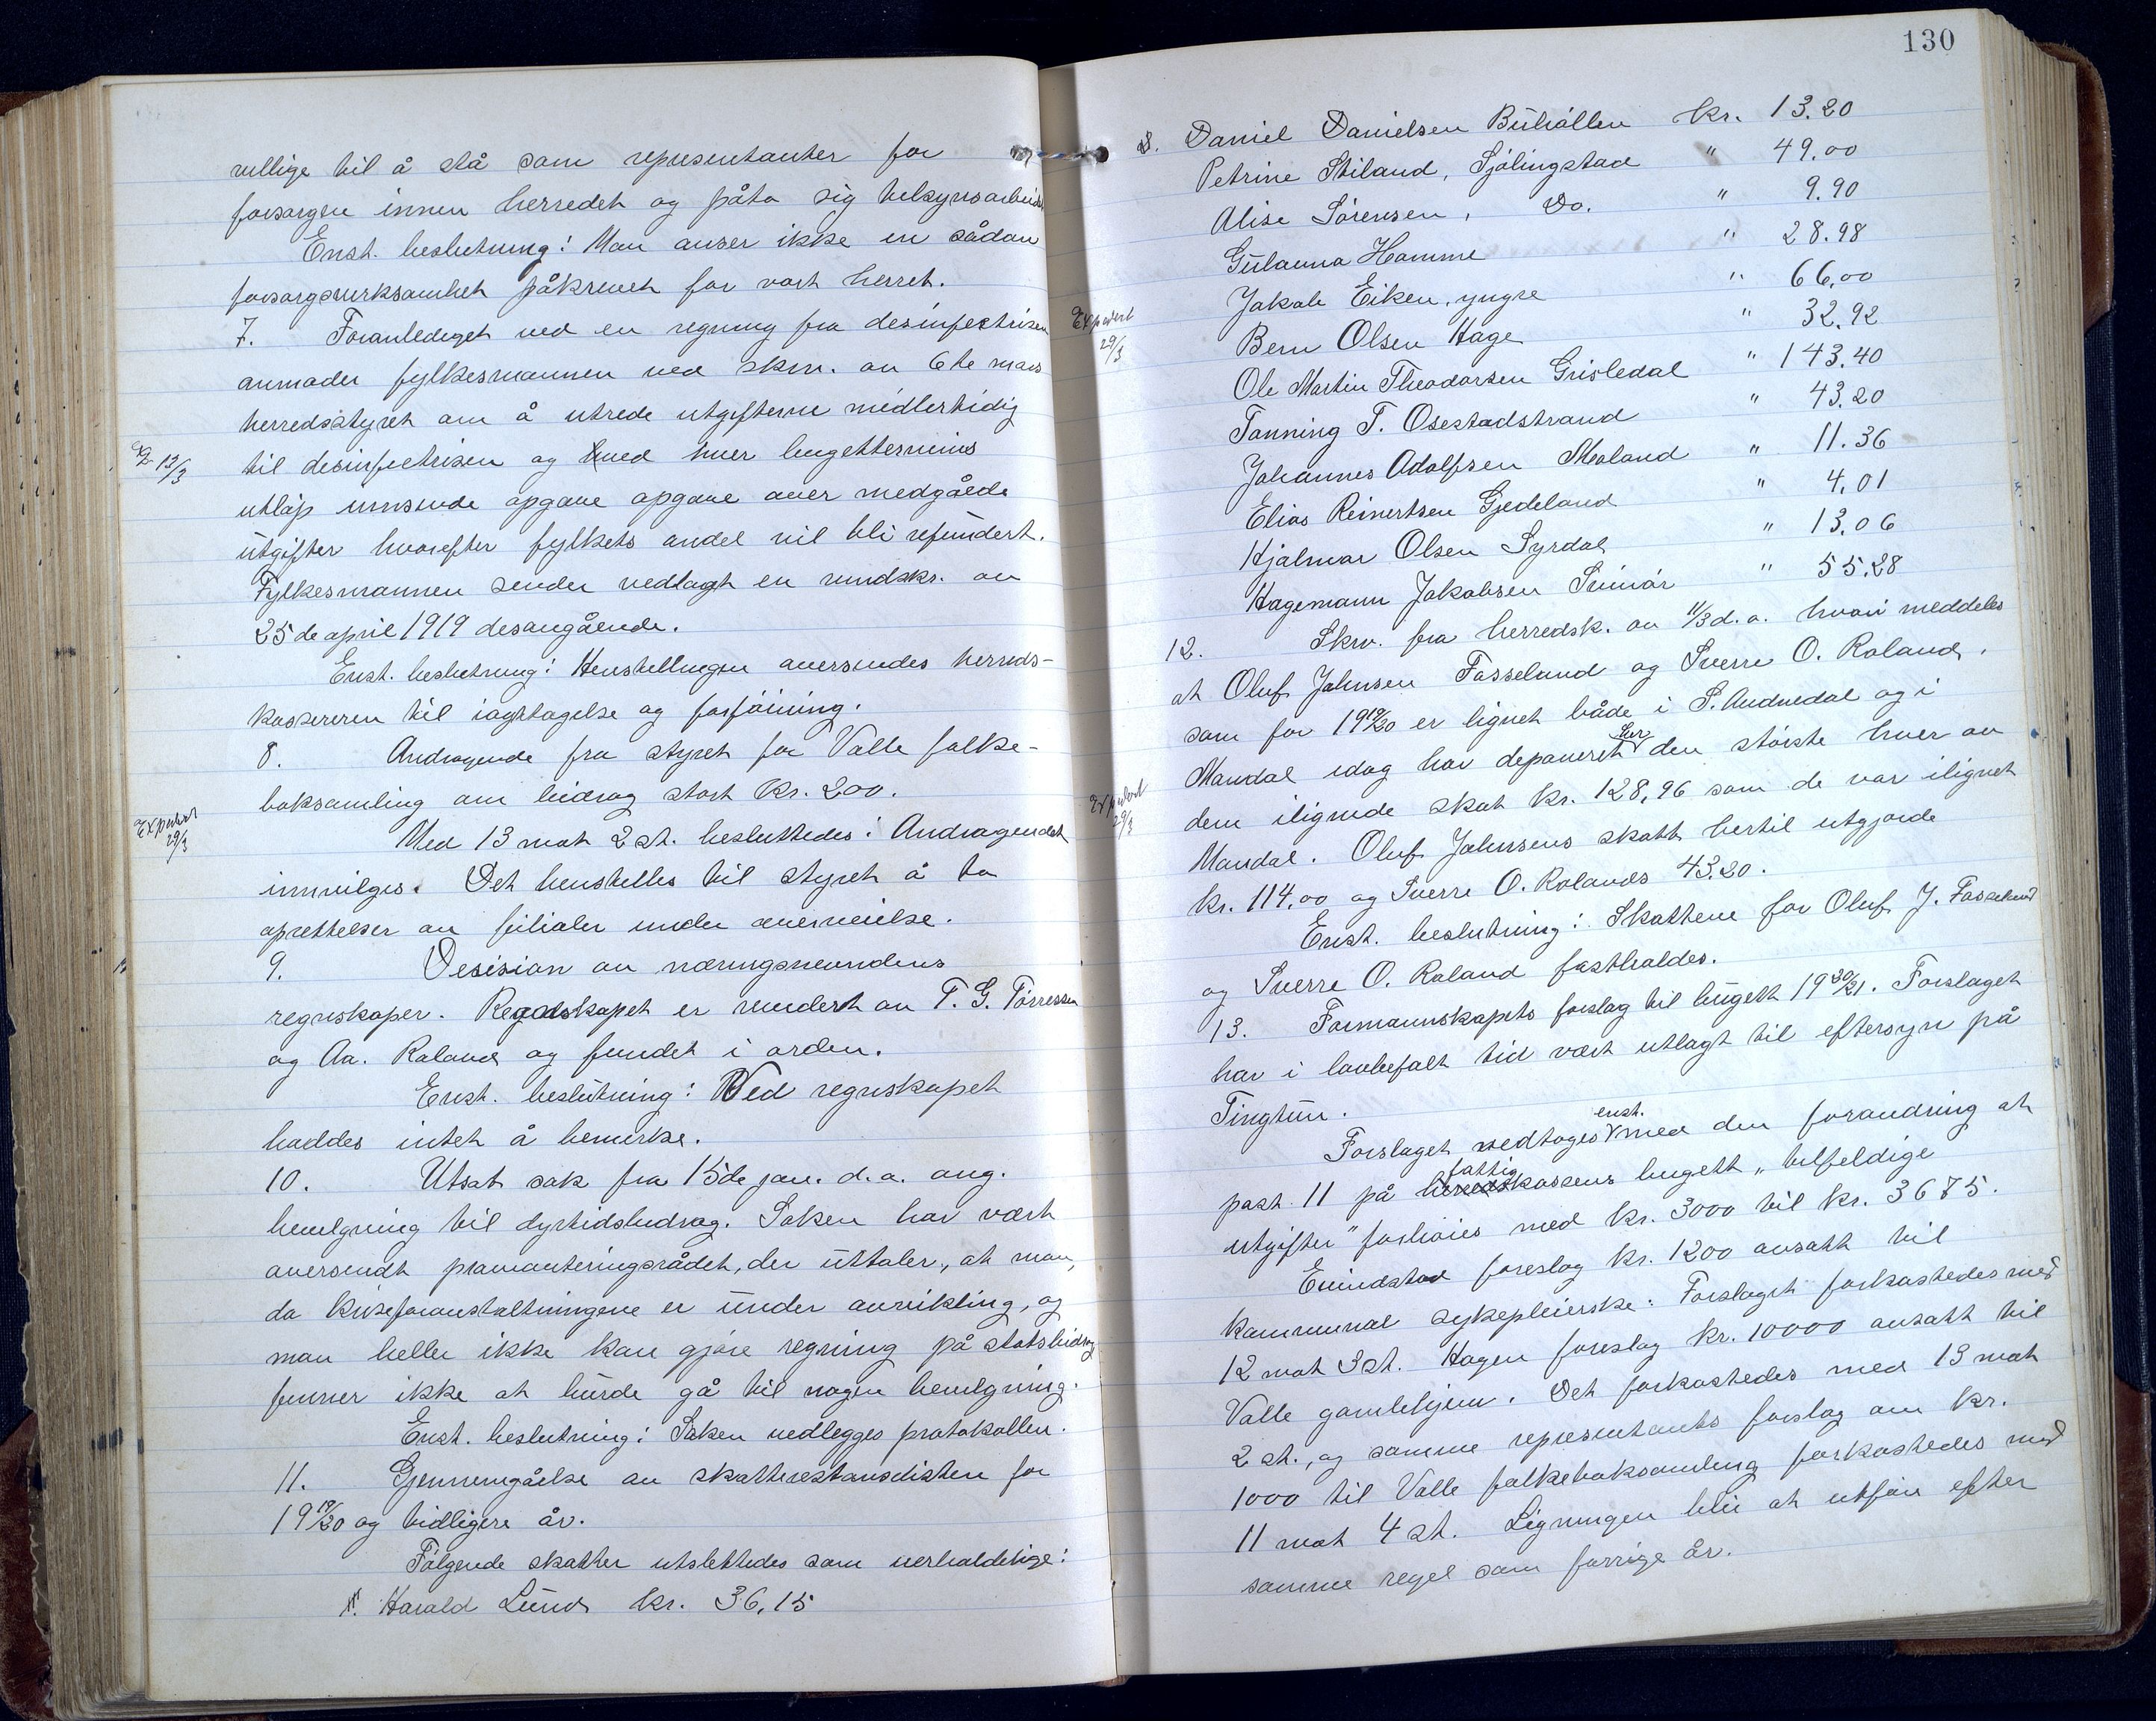 villige til å stå som representanter for
forsorgen innen herredet og påta sig tilsynsarbeidet
Enst. beslutning: Man anser ikke en sådan
forsorgsvirksomhet påkrevet for vort herret.
7. Foranlediget ved en regning fra desinfektrisen
anmoder fylkesmannen ved skrv. av 6te mars
herredsstyret om å utrede utgifterne midlertidig
Exp 13/3
til desinfektrisen og ved hver bugettermins
utløp innsende opgave opgave over medgåede
utgifter hvorefter fylkets andel vil bli refundert.
Fylkesmannen sender vedlagt en rundskr. av
25de april 1919 desangående.
Enst. beslutning: Henstellingen oversendes herreds-
kassereren til iagttagelse og forføining.
8. Andragende fra styret for Valle folke-
boksamling om bidrag stort kr. 200.
Expedert 29/3
Med 13 mot 2 st. besluttedes: Andragendet
innvilges. Det henstilles til styret å ta
oprettelser av filialer under overveielse.
9. Desision av næringsnevndens
regnskaper. Regnskapet er revidert av T. G. Tørressen
og Aa. Roland og fundet i orden.
Enst. beslutning: Ved regnskapet
haddes intet å bemerke.
10. Utsat sak fra 15de jan. d.a. ang.
bevilgning til dyrtidsbidrag. Saken har vært
oversendt provianteringsrådet, der uttaler, at man,
da kriseforanstaltningene er under avvikling, og
man heller ikke kan gjøre regning på statsbidrag
finner ikke at burde gå til nogen bevilgning.
Enst. beslutning: Saken vedlegges protokollen.
11. Gjennemgåelse av skatterestanselisten for
1919/20 og tidligere år.
Følgende skatter utslettedes som uerholdelige:
Harald Lund kr. 36,15
130
Daniel Danielsen Buhøllen kr. 13.20
Petrine Stiland, Sjølingstad " 49.00
Alise Sørensen, Do. " 9.90
Gulauna Homme " 28.98
Jakob Eiken, yngre " 66,00
Expedert 29/3
Bern Olsen Hage " 32.92
Ole Martin Theodorsen Grisledal " 143.40
Tønning T. Osestadstrand " 43.20
Johannes Adolfsen Moland " 11.36
Elias Reinertsen Gjedeland " 4.01
Hjalmar Olsen Syrdal " 13.06
Hagemann Jakobsen Svinør " 55.28
12. Skrv. fra herredsk. av 11/3 d.a. hvori meddeles
at Oluf Johnsen Fasseland og Sverre O. Roland,
som for 1919/20 er lignet både i S. Audnedal og i
Mandal idag har deponeret her den største hver av
Expedert 29/3
dem ilignede skat kr. 128,96 som de var ilignet
Mandal. Oluf Johnsens skatt hertil utgjorde
kr. 114,00 og Sverre O. Rolands 43.20.
Enst. beslutning: Skattene for Oluf J. Fasseland
og Sverre O. Roland fastholdes.
13. Formannskapets forslag til bugett 1920/21. Forslaget
har i lovbefalt tid vært utlagt til eftersyn på
Tingtun.
Forslaget vedtoges enst. med den forandring at
post. 11 på fattigkassens bugett "tilfeldige
utgifter" forhøies med kr. 3000 til kr. 3675.
Evindstad foreslog kr. 1200 ansatt til
kommunal sykepleierske: Forslaget forkastedes med
12 mot 3 st. Hagen foreslog kr. 10000 ansatt til
Valle gamlehjem. Det forkastedes med 13 mot
2 st., og samme representants forslag om kr.
1000 til Valle folkeboksamling forkastedes med
11 mot 4 st. Ligningen blir at utføre efter
samme regel som forrige år.